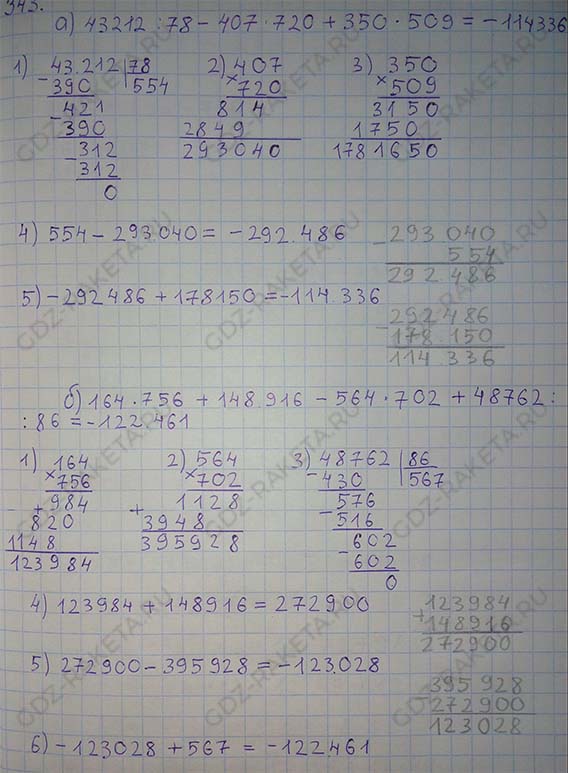 343.
а) 43212 : 78 - 407 · 720 + 350 · 509 = - 114336
1) 43.212 | 78
- 390 554
- 421
390
- 312
312
0
2) 407
× 720
814
2849
293040
3) 350
× 509
3150
1750
1781650
4) 554 - 293.040 = - 292.486
- 293.040
554
292.486
5) - 292486 + 178150 = - 114.336
- 292.486
178.150
114.336
б) 164 · 756 + 148.916 - 564 · 702 + 48762 :
: 86 = - 122.461
1) 164
× 756
+ 984
820
1148
123984
2) 564
× 702
+ 1128
3948
395928
3) 48762 | 86
- 430 567
- 576
516
- 602
602
0
4) 123984 + 148916 = 272900
+ 123984
148916
272900
5) 272900 - 395928 = - 123.028
- 395928
272900
123028
6) - 123028 + 567 = - 122.461
GDZ-RAKETA.RU